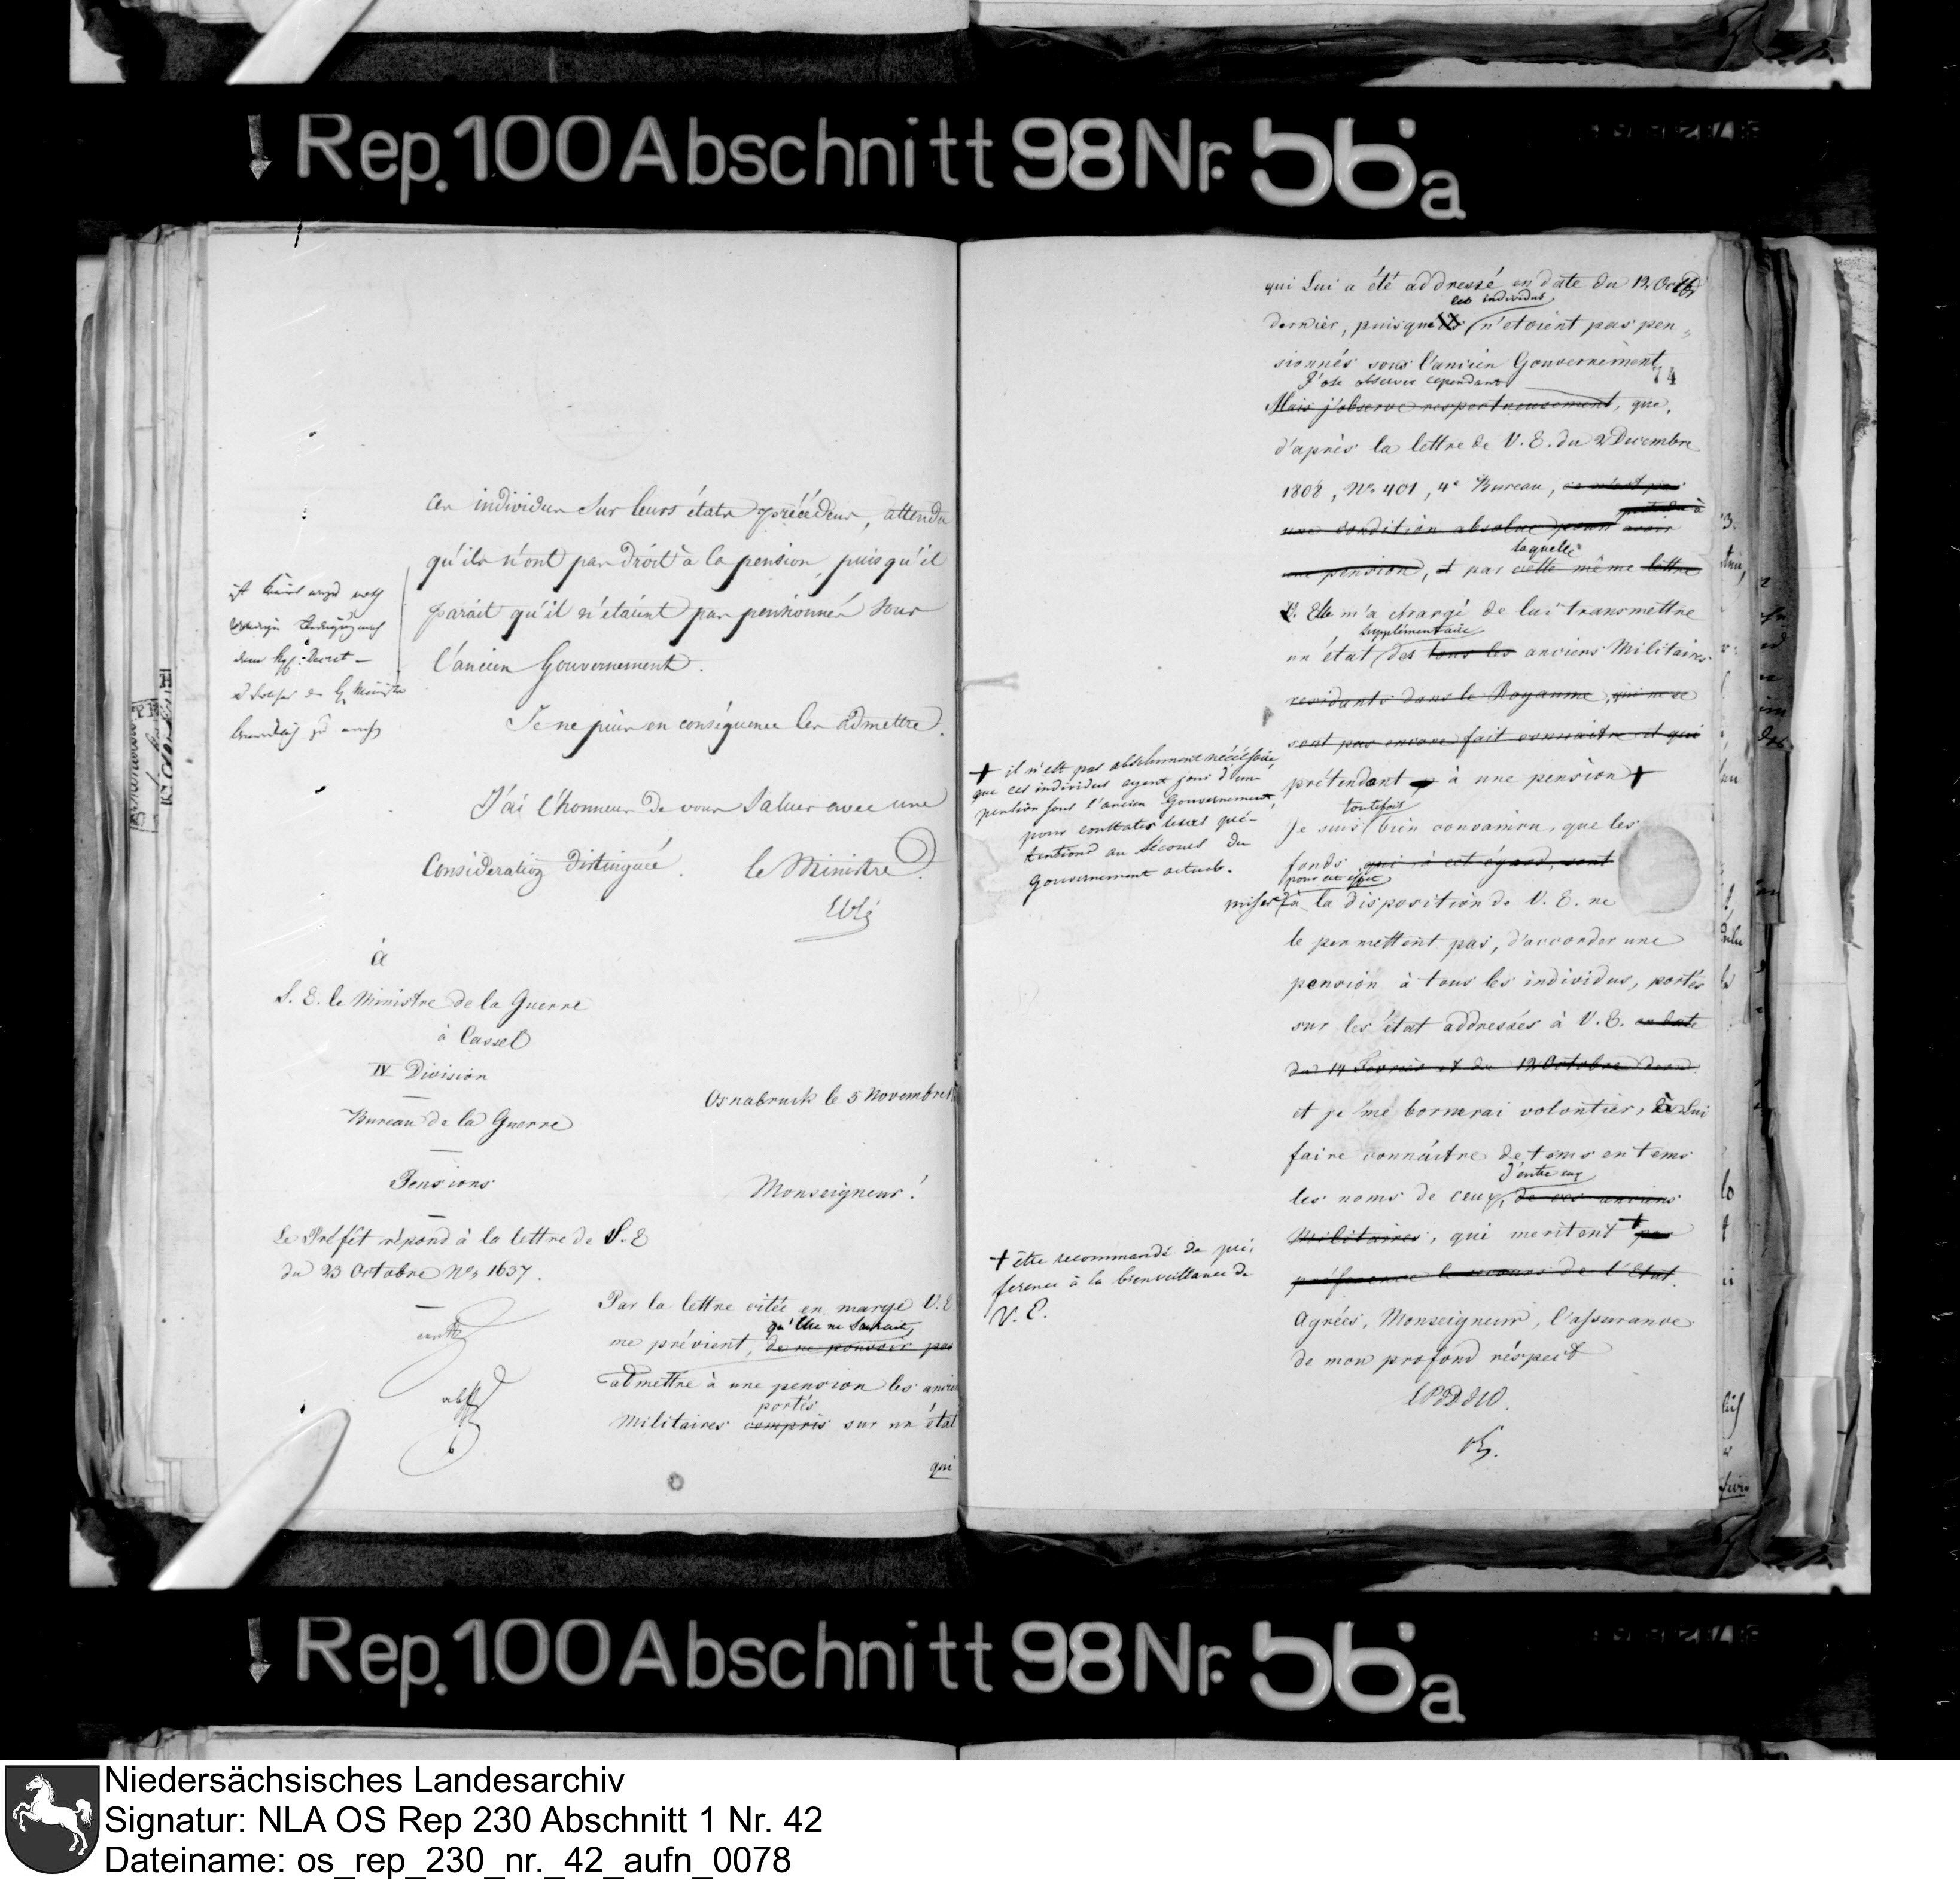 Rep. 100 Abschnitt 98 Nr. 56a
ces individus sur leurs états précédens, attendu
qu'ils n'ont pas droit à la pension, puisqu'il
parait qu'il n'étaient pas pensionnés sous
l'ancien Gouvernement.
Je ne puis en conséquence les admettre.
J'ai l'honneur de vous saluer avec une
Considération distinguée. le Ministre
Eblé
à
S. E. le Ministre de la Guerre
à Cassel
IV Division
Bureau de la Guerre
Pensions
Le Préfet répond à la lettre de S. E
du 23 Octobre No. 1637.
Osnabruck le 5 Novembre
Monseigneur!
Par la lettre citée en marge V. E.
qu'Elle ne saurait
me prévient, de ne pouvoir pas
admettre à une pension les anciens
portés
Militaires compris sur un état
qui
qui Lui a été addressé en date du 12 Octbr
ces individus
dernier, puisque ils n'etoient pas pen-
sionnés sous l'ancien Gouvernement,
74
J'ose observer cependant
Mais j'observe respectueusement, que,
d'après la lettre de V. E. du 2 Decembre
1808, No. 401, 4e Bureau, ce n'est pas
une condition absolue pour avoir
laquelle
une pension, et par cette même lettre
V. Elle m'a chargé de lui transmettre
supplémentaire
un état des tous les anciens Militaires
residants dans le Royaume, qui ne se
sont pas encore fait connaitre et qui
prétendant à une pension +
+ il n'est pas absolument nécéssaire,
que ces individus ayent joui d'une
pension sous l'ancien Gouvernement,
pour constater leurs pré-
tentions au sécours du
Gouvernement actuel.
toutefois
Je suis bien convaincu, que les
fonds qui à cet égard, sont
pour cet effet
mises à la disposition de V. E. ne
le permettent pas, d'accorder une
pension à tous les individus, portés
sur les état addressés à V. E. en date
du 14 Fevrier et du 12 Octobre dern.
et je me bornerai volontier, à Lui
faire connaitre de tems en tems
d'entre eux
les noms de ceux, de ces anciens
Militaires, qui meritent + par
préference le secours de l'Etat.
+ être recommandé de pré-
ference à la bienveillance de
V. E.
Agréés, Monseigneur, l'assurance
de mon profond réspect
Rep. 100 Abschnitt 98 Nr. 56a
Niedersächsisches Landesarchiv
Signatur: NLA OS Rep 230 Abschnitt 1 Nr. 42
Dateiname: os_rep_230_nr._42_aufn_0078